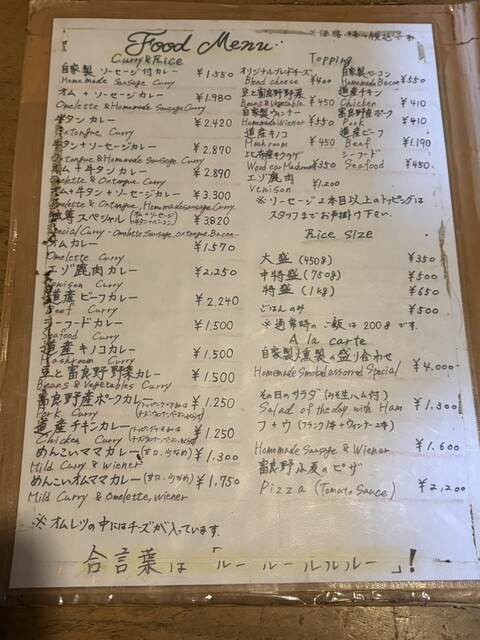 ※価格は
Food Menu
Curry & Rice
自家製 ソーセージ付カレー ¥1.550
Homemade Sausage Curry
オム + ソーセージカレー ¥1.980
Omelette & Homemade Sausage Curry
牛タンカレー ¥2.420
Oxtongue Curry
牛タン+ソーセージカレー ¥2.870
Oxtongue & Homemade Sausage Curry
オム+牛タンカレー ¥2.890
Omelette & Oxtongue Curry
オム+牛タン+ソーセージカレー ¥3.300
Omelette & Oxtongue, Homemade Sausage Curry
スペシャル ¥3.820
Special Curry - Omelette, Sausage, Oxtongue, Bacon -
オムカレー ¥1.570
Omelette Curry
エゾ鹿肉カレー ¥2,250
Venison Curry
道産ビーフカレー ¥2,240
Beef Curry
シーフードカレー ¥1.500
Seafood Curry
道産キノコカレー ¥1.500
Mashroom Curry
豆と富良野野菜カレー ¥1.500
Beans & Vegetables Curry
富良野産ポークカレー ¥1.250
Pork Curry
道産チキンカレー ¥1.250
Chicken Curry
めんこいママカレー (甘口、少なめ) ¥1,300
Mild Curry & Wiener
めんこいオムママカレー (甘口、少なめ) ¥1,750
Mild Curry & Omelette, wiener
※オムレツの中にはチーズが入っています。
Topping
オリジナルブレンドチーズ ¥400
Blend cheese
豆と富良野野菜 ¥450
Beans & Vegetable
自家製ウィンナー ¥550
Homemade Wiener
道産キノコ ¥450
Mashroom
キクラゲ ¥350
Wood ear Mashroom
エゾ鹿肉 ¥1,200
Venison
自家製ベーコン ¥550
Homemade Bacon
道産チキン ¥410
Chicken
富良野産ポーク ¥410
Pork
道産ビーフ ¥1.190
Beef
シーフード ¥450
Seafood
※ソーセージ2本目以上のトッピングは
スタッフまでお声掛け下さい。
Rice Size
大盛 (450g) ¥350
中特盛 (750g) ¥500
特盛 (1kg) ¥650
ごはんのみ ¥500
※通常時のご飯は200gです。
A la carte
自家製燻製の盛り合わせ ¥4,000
Homemade Smoked assorred Special
その日のサラダ (生ハム付) ¥1,300
Salad of the day with Ham
フ+ウ (フランク1本+ウィンナー2本)
Homemade Sausage & Wiener ¥1.600
富良野小麦のピザ
Pizza (Tomato Sauce) ¥2,200
合言葉は「ルー ルールルルー」!